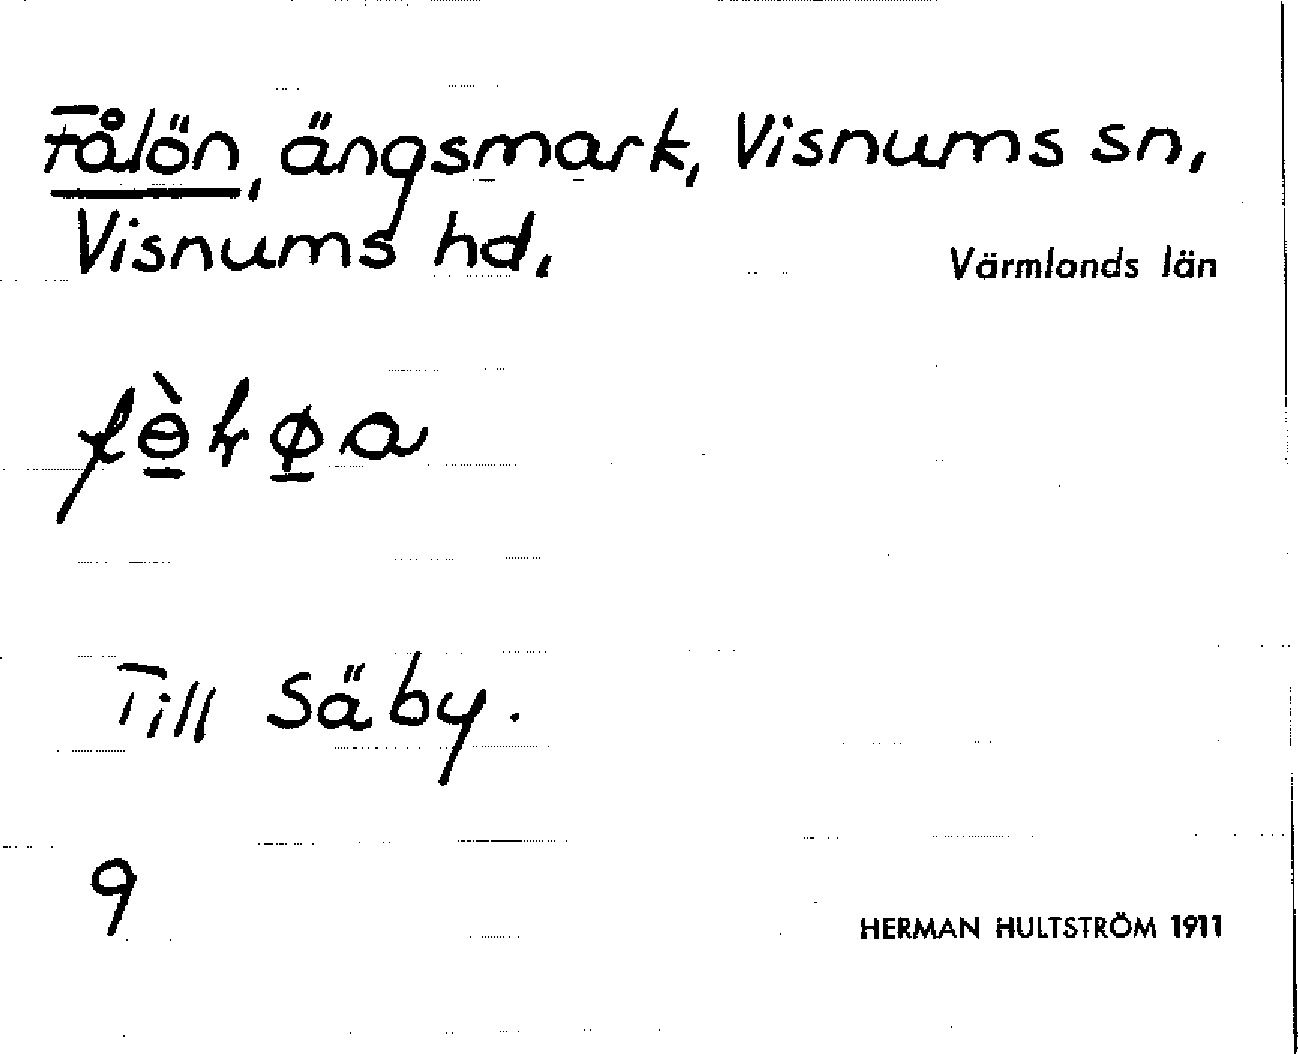 Fålön, ängsmark, Visnums sn,
Visnums hd,
Värmlands län
Till Säby.
9
HERMAN HULTSTRÖM 1911